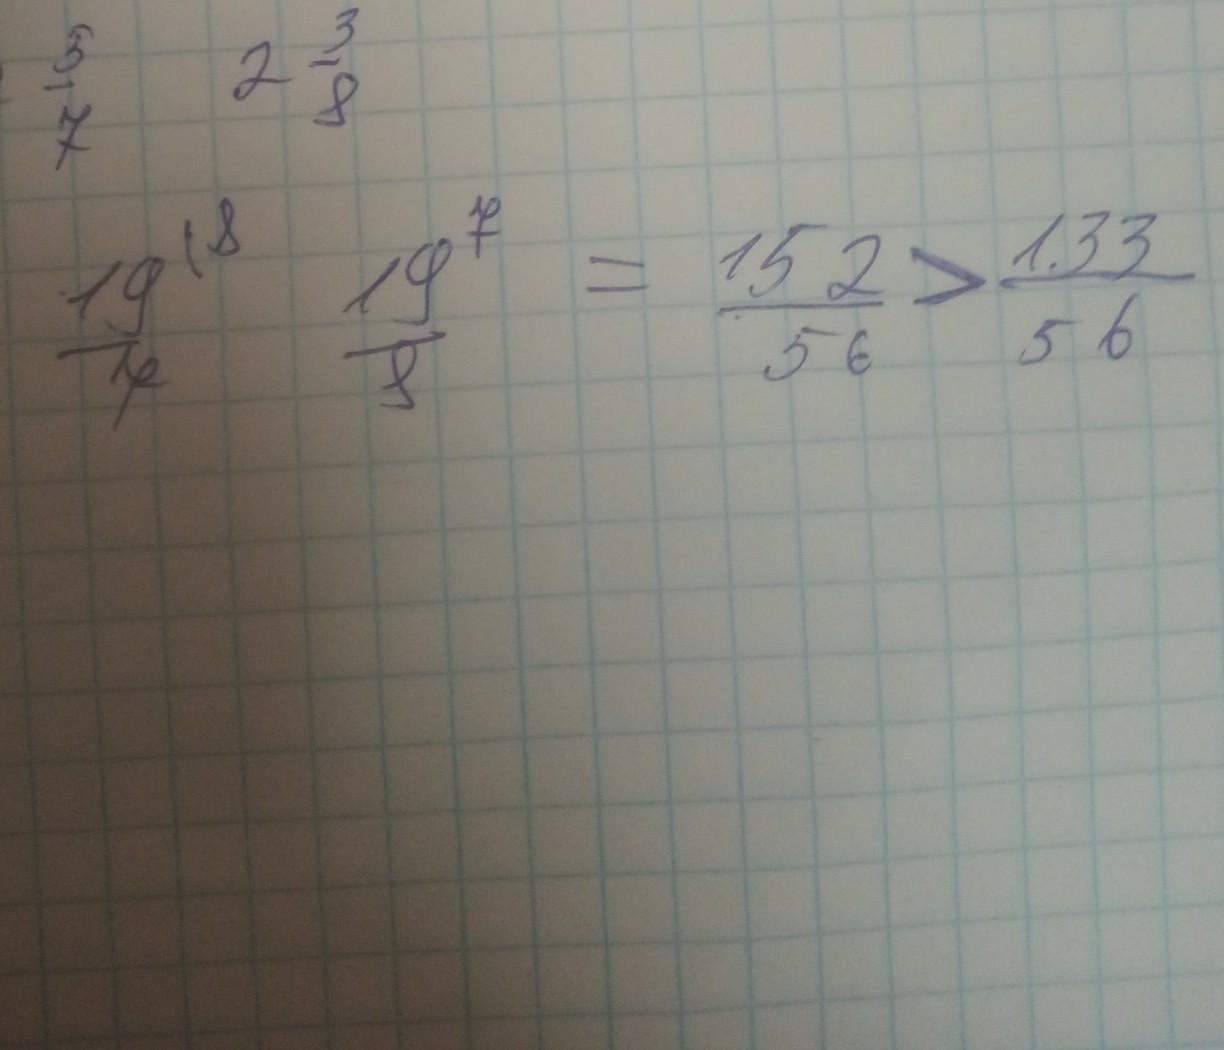 5/7 2 3/8
19/7 (8 19/8 7 = 152/56 > 133/56